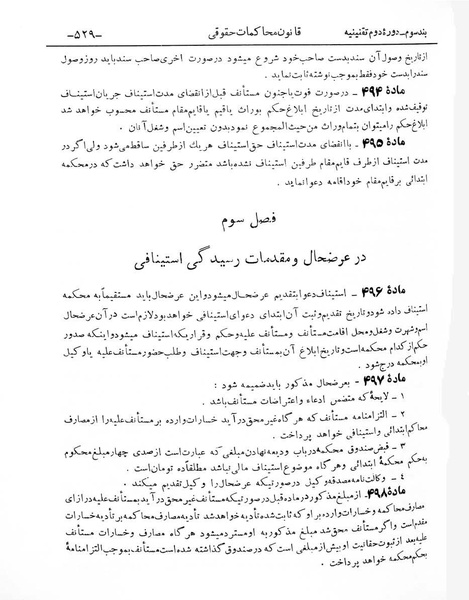 بند سوم ـ دورهٔ دوم تقنینیه قانون محاکمات حقوقی ـ۵۲۹ـ
ازتاریخ وصول آن سندبدست صاحب خود شروع میشود درصورت اخری صاحب سند باید روز وصول
سندرابدست خودفقط بموجب نوشته ثابت نماید .
مادهٔ ۴۹۴ ـ درصورت فوت یا جنون مستأنف قبل از انقضای مدت استیناف جریان استیناف
توقیف شده و ابتدای مدت از تاریخ ابلاغ حکم بوراث یاقیم یاقایم مقام مستأنف محسوب خواهد شد
ابلاغ حکم را میتوان بتمام وراث من حیث المجموع نمود بدون تعیین اسم وشغل آنان .
مادهٔ ۴۹۵ ـ باانقضای مدت استیناف حق استیناف هریك از طرفین ساقط می شود ولی اگر در
مدت استیناف ازطرف قایم مقام طرفین استیناف نشده باشد متضرر حق خواهد داشت که درمحکمه
ابتدائی برقایم مقام خود اقامه دعوا نماید .
فصل سوم
در عرضحال و مقدمات رسیدگی استینافی
مادهٔ ۴۹۶ ـ استیناف دعوا بتقدیم عرضحال میشود و این عرضحال باید مستقیماً به محکمه
استیناف داده شود و تاریخ تقدیم و ثبت آن ابتدای دعوای استینافی خواهد بود لازم است در آن عرضحال
اسم و شهرت و شغل و محل اقامت مستأنف و مستأنف علیه و حکم و قراریکه استیناف میشود و اینکه صدور
حکم از کدام محکمه است و تاریخ ابلاغ آن بمستأنف و جهت استیناف و طلب حضور مستأنف علیه یا وکیل
او بمحکمه درج شود .
مادهٔ ۴۹۷ ـ بعرضحال مذکور باید ضمیمه شود :
۱ ـ لایحهٔ که متضمن ادعاء و اعتراضات مستأنف باشد .
۲ ـ التزامنامه مستأنف که هرگاه غیر محق در آید خسارات وارده بر مستأنف علیه را از مصارف
محاکم ابتدائی و استینافی خواهد پرداخت .
۳ ـ قبض صندوق محکمه در باب ودیعه نهادن مبلغی که عبارت است از صدی چهار مبلغ محکوم
به حکم محکمهٔ ابتدائی و هرگاه موضوع استیناف مالی نباشد مطلقا ده تومان است .
۴ ـ وکالت نامه مصدقه وکیل درصورتیکه عرضحال را وکیل تقدیم میکند .
مادهٔ ۴۹۸ـ از مبلغ مذکور در ماده قبل در صورتیکه مستأنف غیر محق در آید بمستأنف علیه در ازای
مصارف محاکمه و خسارات وارده بر او که ثابت شده تأدیه خواهد شد تأدیه مصارف محاکمه بر تأدیه خسارات
مقدم است و اگر مستأنف محق شد مبلغ مذکور به او مسترد میشود هرگاه مصارف و خسارات
مستأنف علیه با ثبوت حقانیت او بیش از مبلغی است که در صندوق گذاشته شده است مستأنف بموجب التزامنامهٔ
بحکم محکمه خواهد پرداخت .